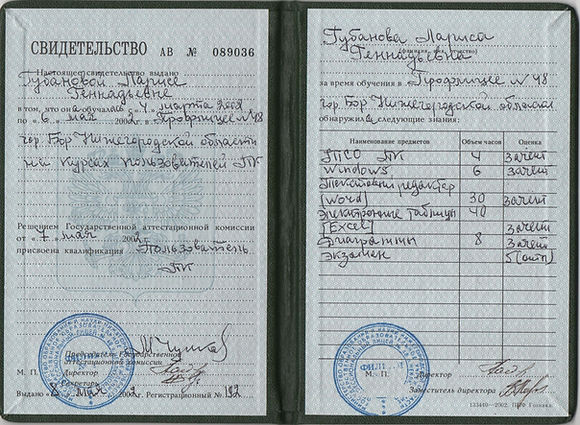 СВИДЕТЕЛЬСТВО АВ № 089036
Настоящее свидетельство выдано
Губановой Ларисе
Геннадьевне
в том, что она обучалась с «4» марта 2002
по «6» мая 2002г. в Профлицее №48
гор. Бор Нижегородской области
на курсах пользователей ПК
Решением Государственной аттестационной комиссии
от «7» мая 2002г.
присвоена квалификация Пользователь
ПК
Председатель Государственной
аттестационной комиссии
М. П. Директор
Секретарь
Выдано «8» мая 2002г. Регистрационный № 192
Губанова Лариса
Геннадьевна
(фамилия, имя, отчество)
за время обучения в Профлицее №48
гор. Бор Нижегородской области
обнаружила следующие знания:
Наименование предметов Объем часов Оценка
ТСО ПК 4 зачет
Windows 6 зачет
Текстовый редактор
[Word] 30 зачет
Электронные таблицы 40
[Excel] зачет
Диаграммы 8 зачет
Экзамен 5 (отл)
ФИЛИАЛ
М. П. Директор
Заместитель директора
133440—2002. ППФ Гознака.